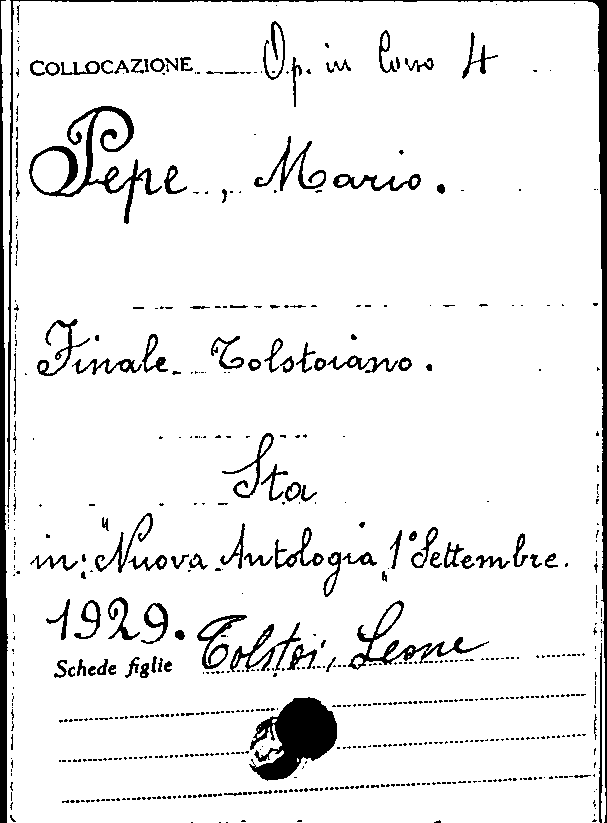 COLLOCAZIONE Op. in Corso 4
Pepe, Mario.
Finale Tolstoiano.
Sta
in: "Nuova Antologia" 1° Settembre.
1929.
Schede figlie Tolstoi, Leone